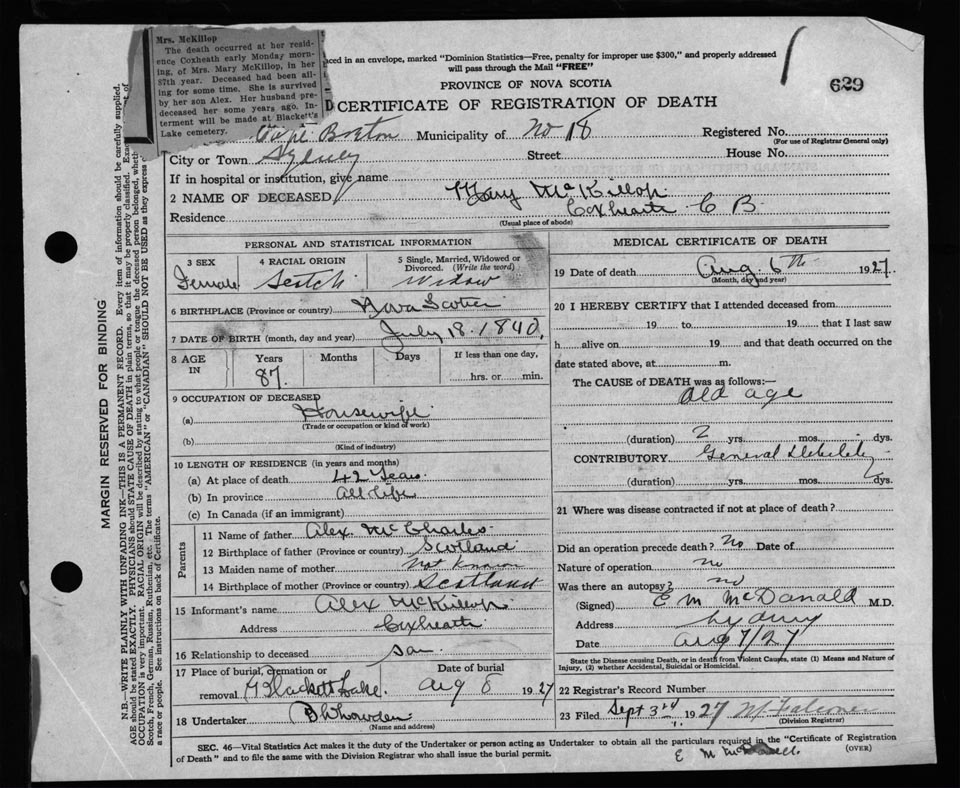 Mrs. McKillop
The death occurred at her resid-
ence Coxheath early Monday morn-
ing, of Mrs. Mary McKillop, in her
87th year. Deceased had been ail-
ing for some time. She is survived
by her son Alex. Her husband pre-
deceased her some years ago. In-
terment will be made at Blackett's
Lake cemetery.
aced in an envelope, marked "Dominion Statistics—Free, penalty for improper use $300," and properly addressed
will pass through the Mail "FREE"
PROVINCE OF NOVA SCOTIA
629
D CERTIFICATE OF REGISTRATION OF DEATH
Cape Breton Municipality of No 18 Registered No.
(For use of Registrar General only)
City or Town Sydney Street House No.
If in hospital or institution, give name
2 NAME OF DECEASED Mary McKillop
Residence Coxheath C B
(Usual place of abode)
PERSONAL AND STATISTICAL INFORMATION
3 SEX 4 RACIAL ORIGIN 5 Single, Married, Widowed or
Divorced. (Write the word)
Female Scotch Widow
6 BIRTHPLACE (Province or country) Nova Scotia
7 DATE OF BIRTH (month, day and year) July 18. 1840
8 AGE IN Years Months Days If less than one day,
87 hrs. or min.
9 OCCUPATION OF DECEASED
(a) Housewife
(Trade or occupation or kind of work)
(b)
(Kind of industry)
10 LENGTH OF RESIDENCE (in years and months)
(a) At place of death 42 Years
(b) In province all life
(c) In Canada (if an immigrant)
Parents
11 Name of father Alex. McCharles
12 Birthplace of father (Province or country) Scotland
13 Maiden name of mother Not Known
14 Birthplace of mother (Province or country) Scotland
15 Informant's name Alex McKillop
Address Coxheath
16 Relationship to deceased son
17 Place of burial, cremation or Date of burial
removal Blackett Lake. Aug 8 1927
18 Undertaker
(Name and address)
MEDICAL CERTIFICATE OF DEATH
19 Date of death Aug. 6th 1927
(Month, day and year)
20 I HEREBY CERTIFY that I attended deceased from
19 to 19 that I last saw
h alive on 19 and that death occurred on the
date stated above, at m.
The CAUSE of DEATH was as follows:—
Old age
(duration) 2 yrs. mos. dys.
CONTRIBUTORY General Debility
(duration) yrs. mos. dys.
21 Where was disease contracted if not at place of death?
Did an operation precede death? No Date of
Nature of operation no
Was there an autopsy? no
(Signed) E M McDonald M.D.
Address Sydney
Date Aug 7/27
State the Disease causing Death, or in death from Violent Causes, state (1) Means and Nature of
Injury, (2) whether Accidental, Suicidal or Homicidal.
22 Registrar's Record Number
23 Filed Sept 3rd 1927
(Division Registrar)
SEC. 46—Vital Statistics Act makes it the duty of the Undertaker or person acting as Undertaker to obtain all the particulars required in the "Certificate of Registration
of Death" and to file the same with the Division Registrar who shall issue the burial permit.
(OVER)
MARGIN RESERVED FOR BINDING
N.B.—WRITE PLAINLY WITH UNFADING INK—THIS IS A PERMANENT RECORD. Every item of information should be carefully supplied.
AGE should be stated EXACTLY. PHYSICIANS should STATE CAUSE OF DEATH in plain terms, so that it may be properly classified. Exac
OCCUPATION is very important. RACIAL ORIGIN will be described by stating to what people or tongue the deceased person belonged, wheth
Scotch, French, German, Russian, Ruthenian, etc. The terms "AMERICAN" or "CANADIAN" SHOULD NOT BE USED as they express c
a race or people. See instructions on back of Certificate.